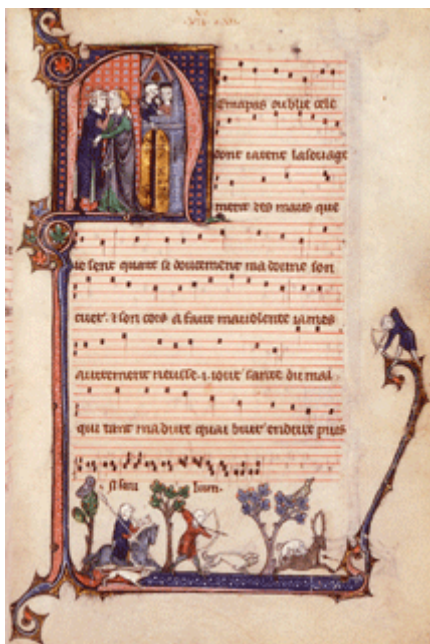 N emapas oublie cele
dont iatent lasouage
ment des maus que
ie sent quant si doucement ma doune son
cuer. ⁊ son cors a faire mavolente iames
autrement neusse .i. iour sante du mal
qui tant madure endure